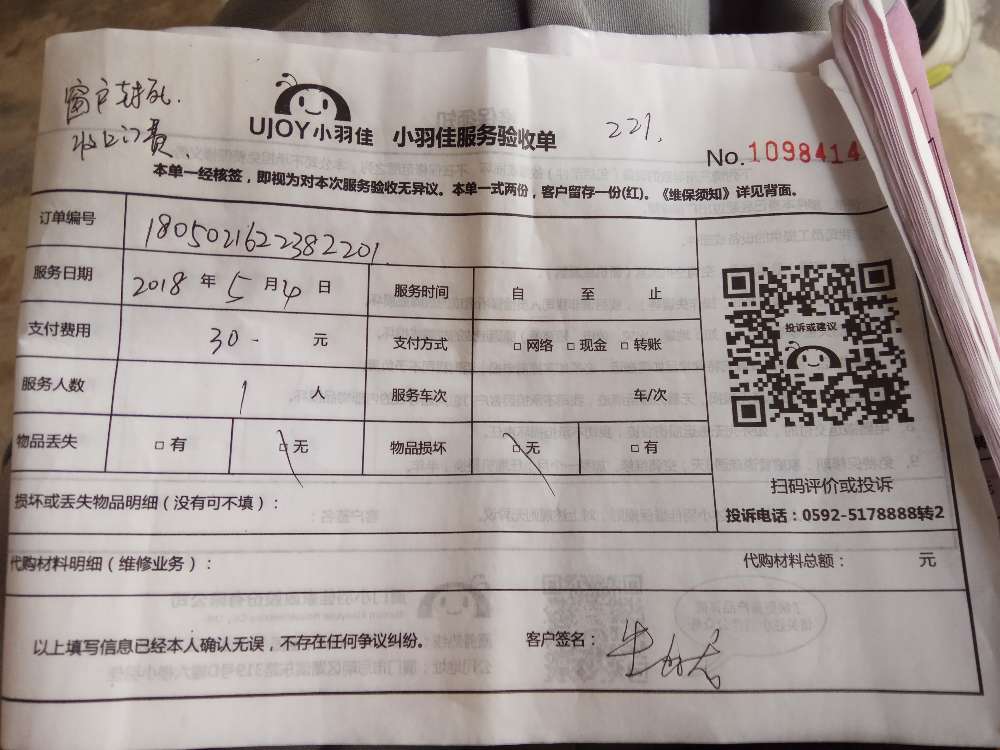 窗户封死.
收上门费.
UJOY小羽佳 小羽佳服务验收单
221.
No.1098414
本单一经核签，即视为对本次服务验收无异议。本单一式两份，客户留存一份(红)。《维保须知》详见背面。
订单编号 1805021622382201.
服务日期 2018 年 5 月 4 日 服务时间 自 至 止
支付费用 30- 元 支付方式 □ 网络 □ 现金 □ 转账
投诉或建议
服务人数 1 人 服务车次 车/次
物品丢失 □ 有 □ 无 物品损坏 □ 无 □ 有
扫码评价或投诉
投诉电话：0592-5178888转2
损坏或丢失物品明细（没有可不填）：
代购材料明细（维修业务）： 代购材料总额： 元
以上填写信息已经本人确认无误，不存在任何争议纠纷。 客户签名：